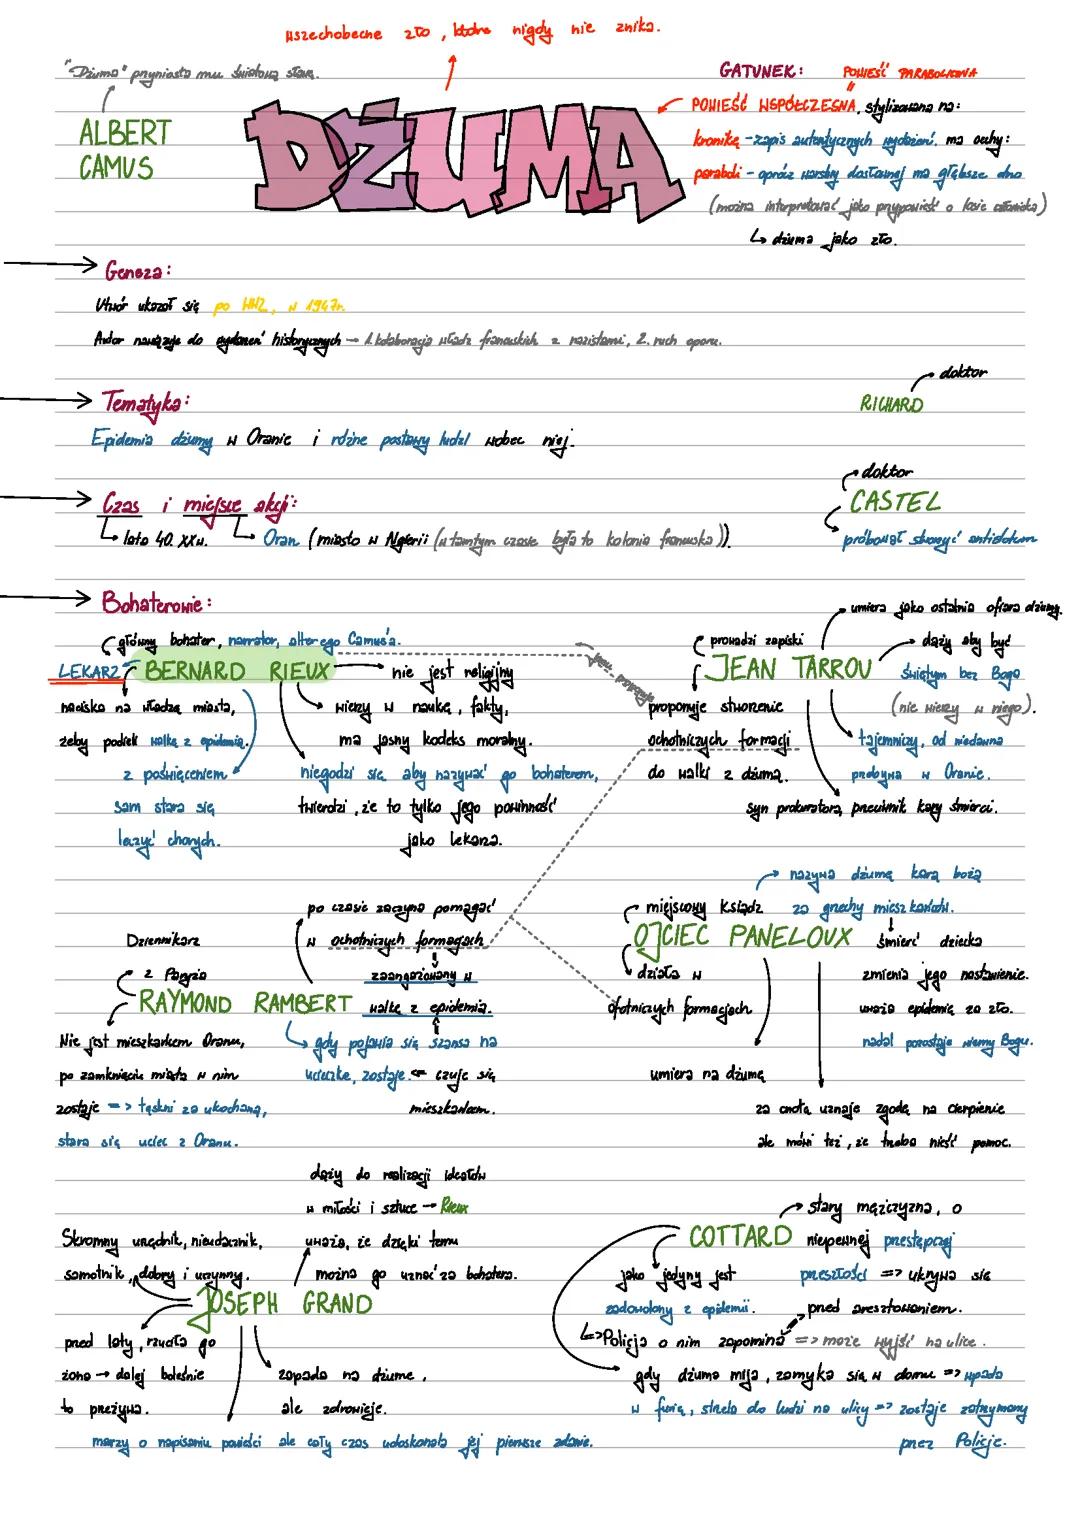 wszechobecne zło, które nigdy nie znika.
"Dżuma" przyniosła mu światową sławę.
ALBERT
CAMUS
DŻUMA
GATUNEK: POWIEŚĆ PARABOLICZNA
"
POWIEŚĆ WSPÓŁCZESNA, stylizowana na:
kronikę - zapis autentycznych wydarzeń. ma cechy:
paraboli - oprócz warstwy dosłownej ma głębsze dno
(można interpretować jako przypowieść o losie człowieka)
↳ dżuma jako zło.
→ Geneza:
Utwór ukazał się po WW2, w 1947r.
Autor nawiązuje do wydarzeń historycznych → 1. kolaboracja władz francuskich z nazistami, 2. ruch oporu.
→ Tematyka:
Epidemia dżumy w Oranie i różne postawy ludzi wobec niej.
doktor
RICHARD
→ Czas i miejsce akcji:
↳ lata 40. XXw. ↳ Oran (miasto w Algerii (w tamtym czasie była to kolonia francuska)).
doktor
CASTEL
próbował stworzyć antidotum
→ Bohaterowie:
główny bohater, narrator, alter ego Camus'a.
LEKARZ BERNARD RIEUX
nie jest religijny
naciska na władzę miasta,
żeby podjęk walkę z epidemią.
z poświęceniem
sam stara się
leczyć chorych.
wierzy w naukę, fakty,
ma jasny kodeks moralny.
niegodzi się, aby nazywać go bohaterem,
twierdzi, że to tylko jego powinność
jako lekarza.
umiera jako ostatnia ofiara dżumy.
prowadzi zapiski
JEAN TARROU
dąży aby być
świętym bez Boga
(nie wierzy w niego).
proponuje stworzenie
ochotniczych formacji
do walki z dżumą.
tajemniczy, od niedawna
przebywa w Oranie.
syn prokuratora, przeciwnik kary śmierci.
po czasie zaczyna pomagać
w ochotniczych formacjach
zaangażowany w
walkę z epidemią.
Dziennikarz
z Paryża
RAYMOND RAMBERT
Nie jest mieszkańcem Oranu,
po zamknięciu miasta w nim
zostaje => tęskni za ukochaną,
stara się uciec z Oranu.
gdy pojawia się szansa na
ucieczkę, zostaje. ← czuje się
mieszkańcem.
nazywa dżumę karą bożą
miejscowy ksiądz za grzechy mieszkańców.
OJCIEC PANELOUX
działa w
ofotniczych formacjach
śmierć dziecka
zmienia jego nastawienie.
uważa epidemię za zło.
nadal pozostaje wierny Bogu.
umiera na dżumę
za cnotę uznaje zgodę na cierpienie
ale mówi też, że trzeba nieść pomoc.
dąży do realizacji ideałów
w miłości i sztuce → Rieux
uważa, że dzięki temu
można go uznać za bohatera.
Skromny urzędnik, nieudacznik,
samotnik, dobry i uczynny.
JOSEPH GRAND
przed laty, rzuciła go
żona → dalej boleśnie
to przeżywa.
zapada na dżumę,
ale zdrowieje.
marzy o napisaniu powieści ale cały czas udoskonala jej pierwsze zdanie.
stary mężczyzna, o
COTTARD niepewnej przestępczej
przeszłości => ukrywa się
przed aresztowaniem.
jako jedyny jest
zadowolony z epidemii.
↳>Policja o nim zapomina => może wyjść na ulice.
gdy dżuma mija, zamyka się w domu => wpada
w furię, strzela do ludzi na ulicy => zostaje zatrzymany
przez Policję.